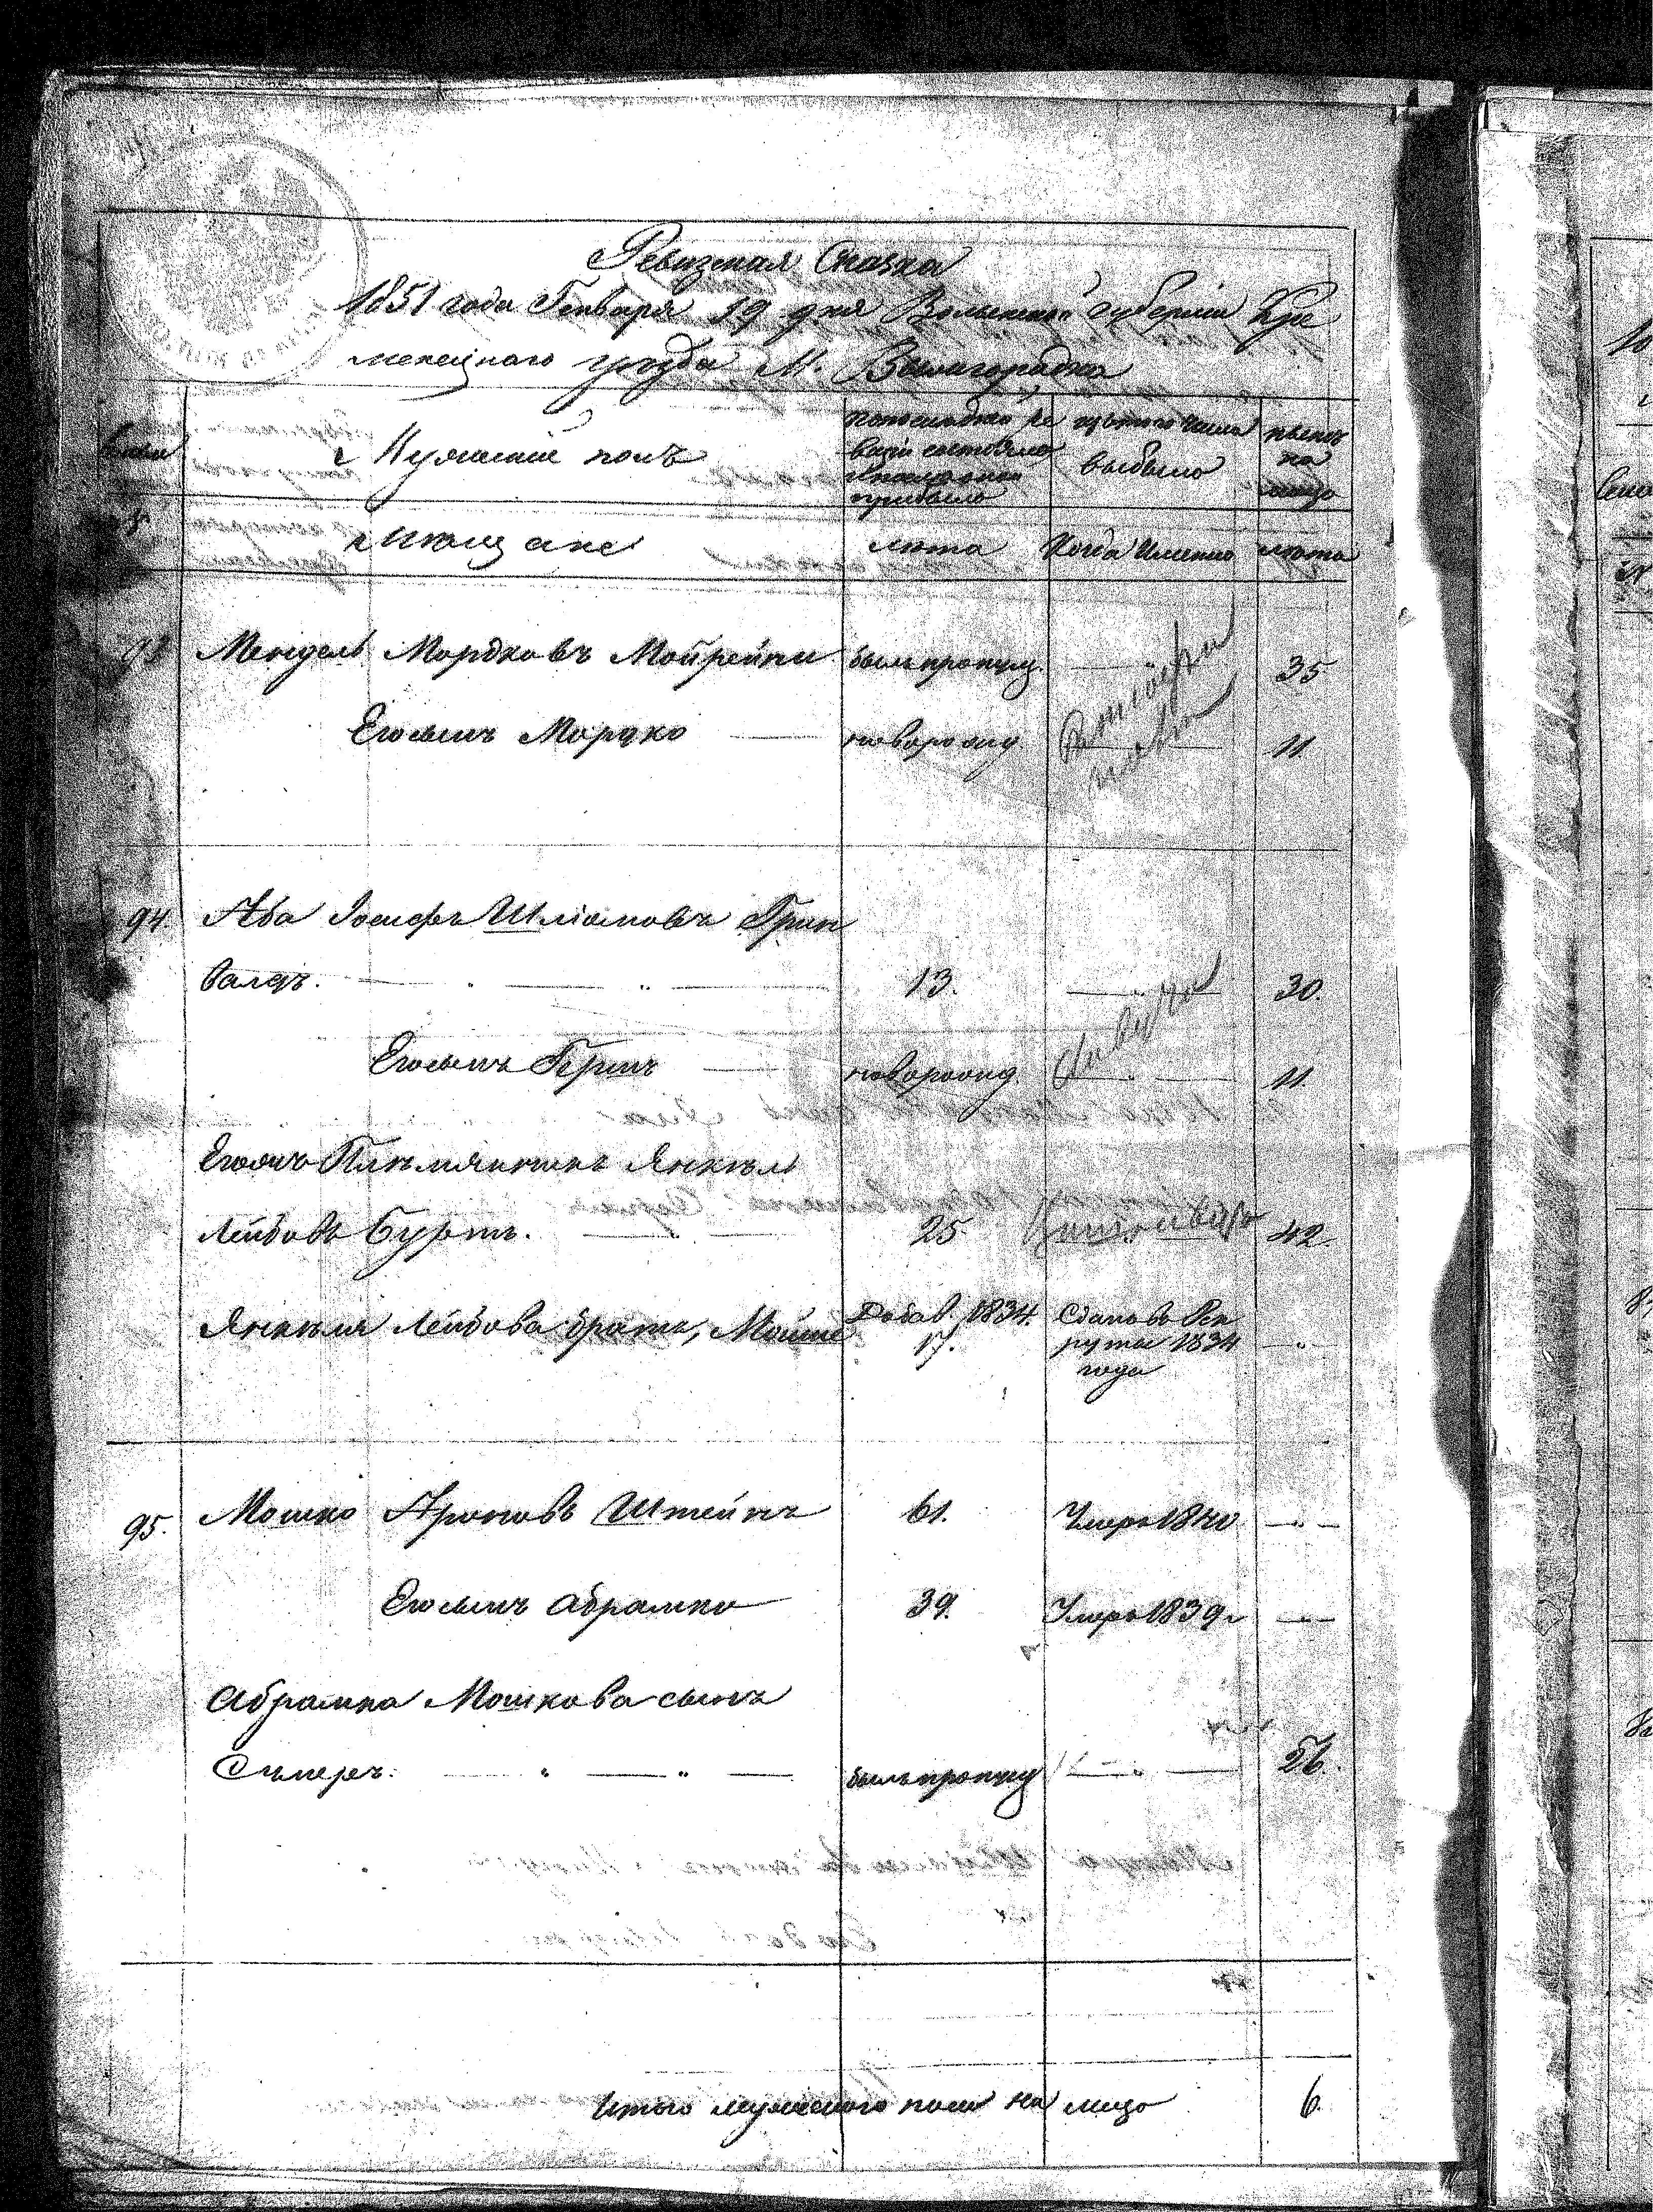 Ревизская Сказка
1851 года Генваря 19 дня Волынской губерніи Кре
менецкаго уѣзда М. Вышгородка
Мужескій полъ
По последней ре
визіи состояло
и после оной
прибыло
изъ того числа
выбыло
нынѣ
на
лицо
Мѣщане
лѣта
Когда Именно
лѣта
93 Мендель Мордковъ Мойрейни былъ пропущ. — 35
Его сынъ Мордко — новорожд. — 11.
94. Аба Іосифъ Шліомовъ Грин
валдъ. 13. — 30.
Его сынъ Герш — новорожд. — 11.
Его отч Племянникъ Янкель
Лейбовъ Буртъ. 25 42.
Янкеля Лейбова братъ, Мошко
Добав. 1834.
17.
Сданъ въ Рек
руты 1834
года
95. Мошко Ароновъ Штейнъ 61. Умеръ 1840 —
Его сынъ Абрамко 39. Умеръ 1839 г —
Абрамка Мошкова сынъ
былъ пропущ — 26.
Итого мужескаго пола на лицо 6.